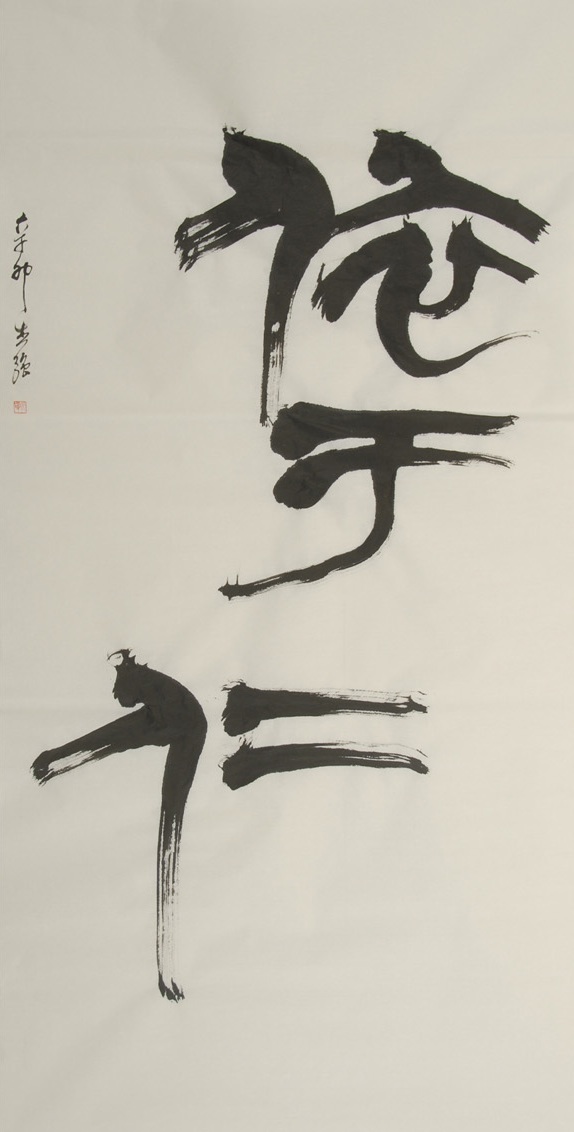 依于仁
辛卯